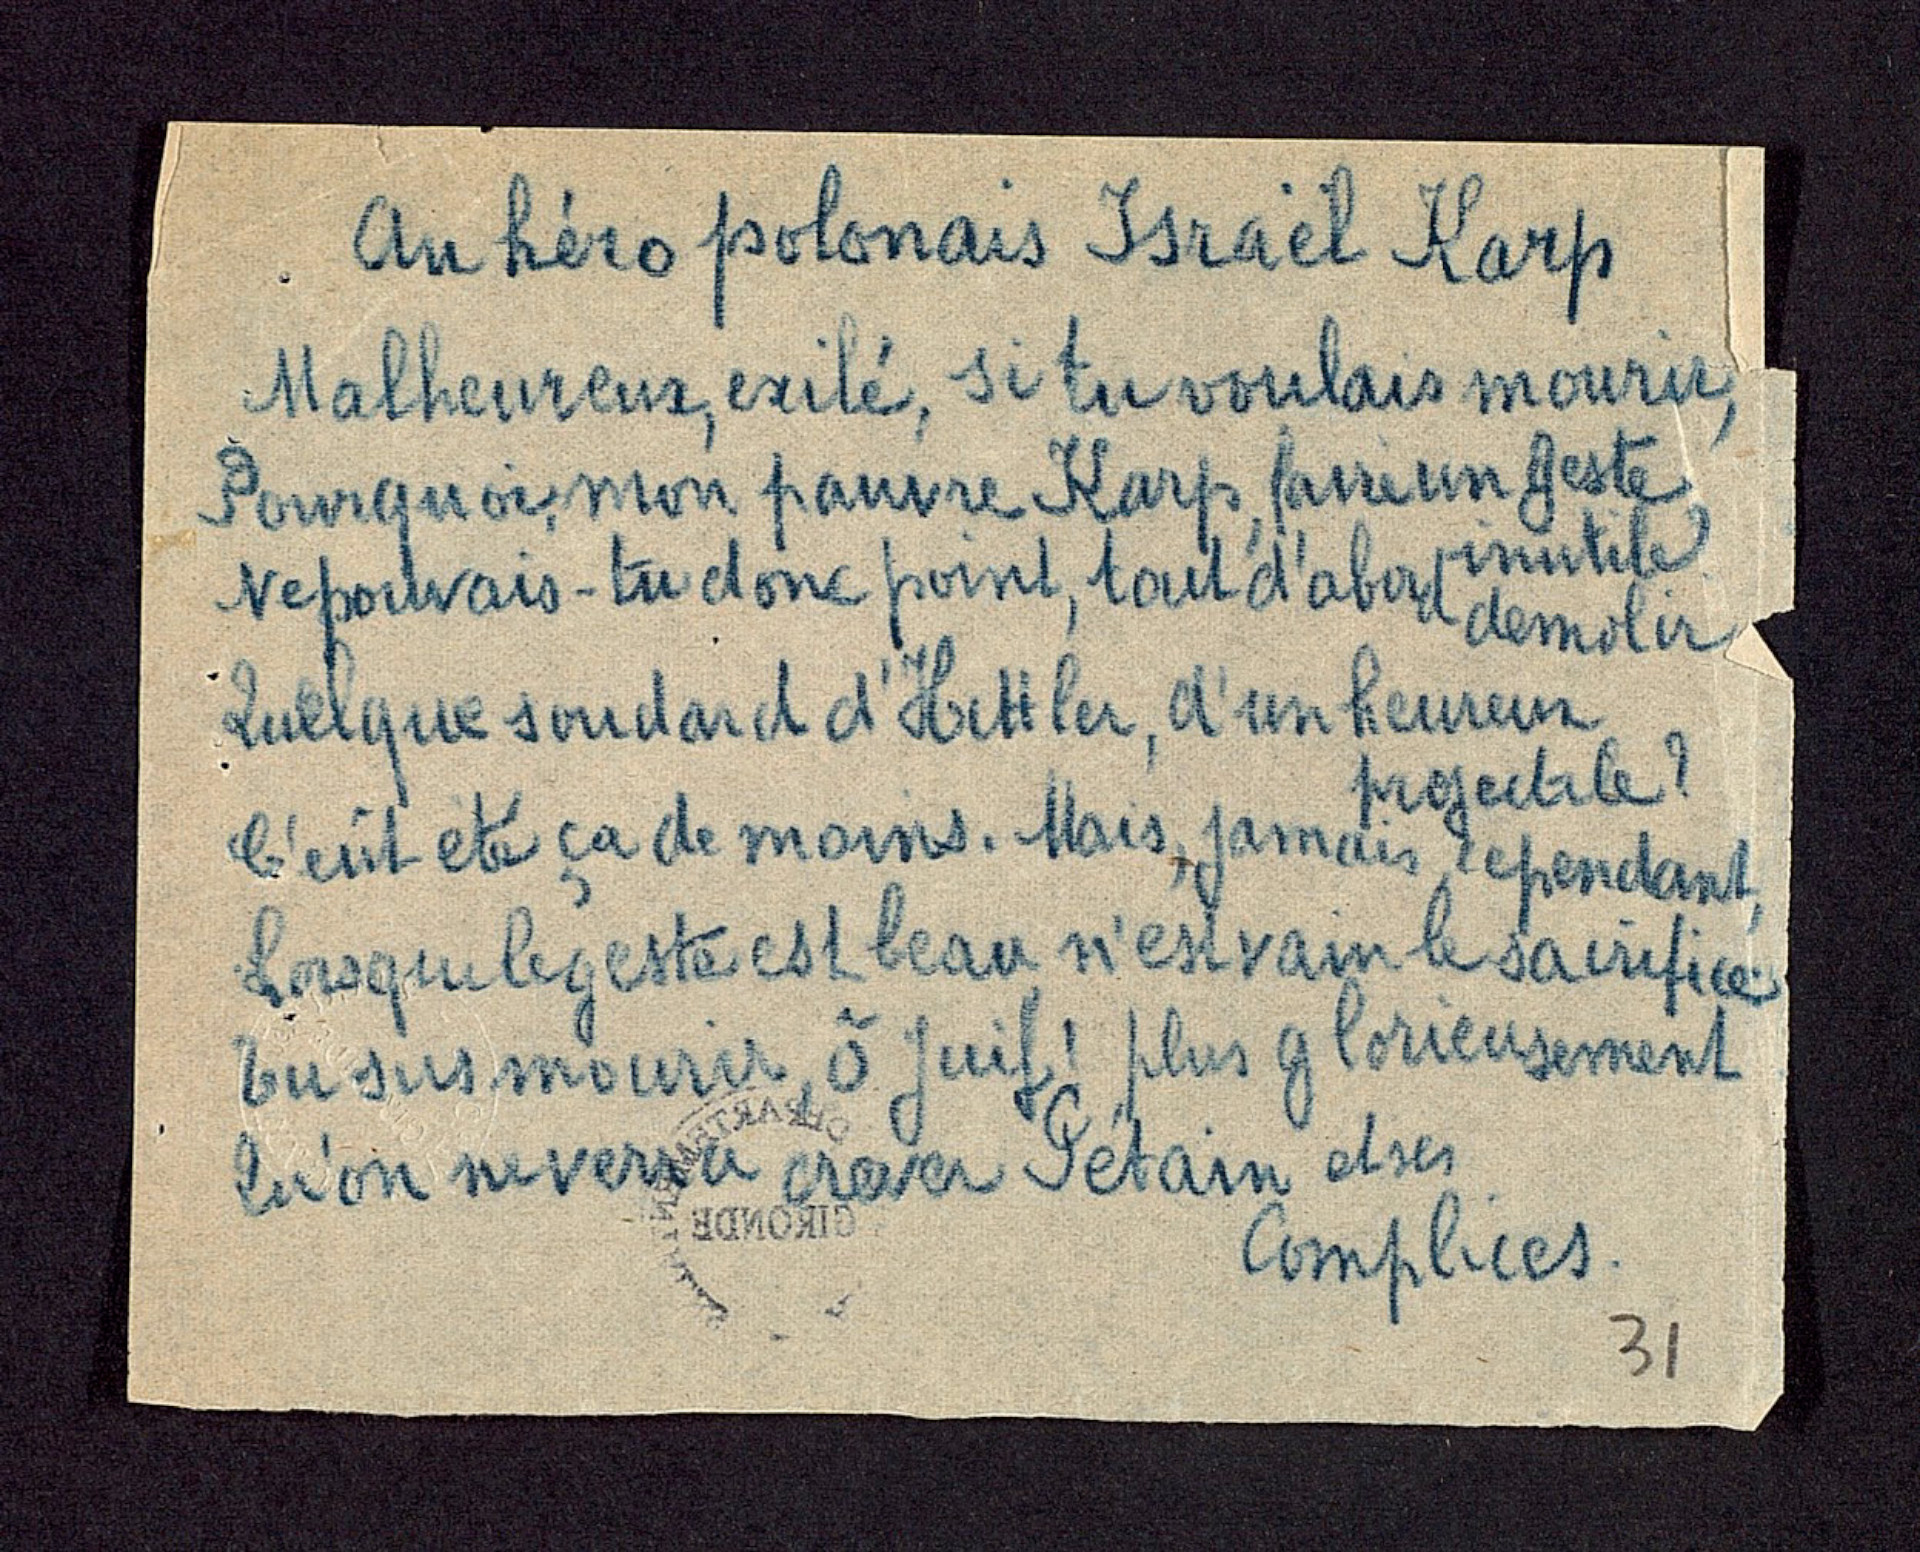 Au héro polonais Israël Karp
Malheureux, exilé, si tu voulais mourir,
Pourquoi, mon pauvre Karp, faire un geste
inutile
Ne pouvais-tu donc point, tout d'abord
demolir
Quelque soudard d'Hittler, d'un heureux
projectile?
C'eût été ça de moins. Mais, jamais cependant,
Lorsque le geste est beau n'est vain le sacrifice
Tu sus mourir, õ Juif! plus glorieusement
Qu'on ne verra crever Pétain et ses
Complices.
DÉPARTEMENT
GIRONDE
31